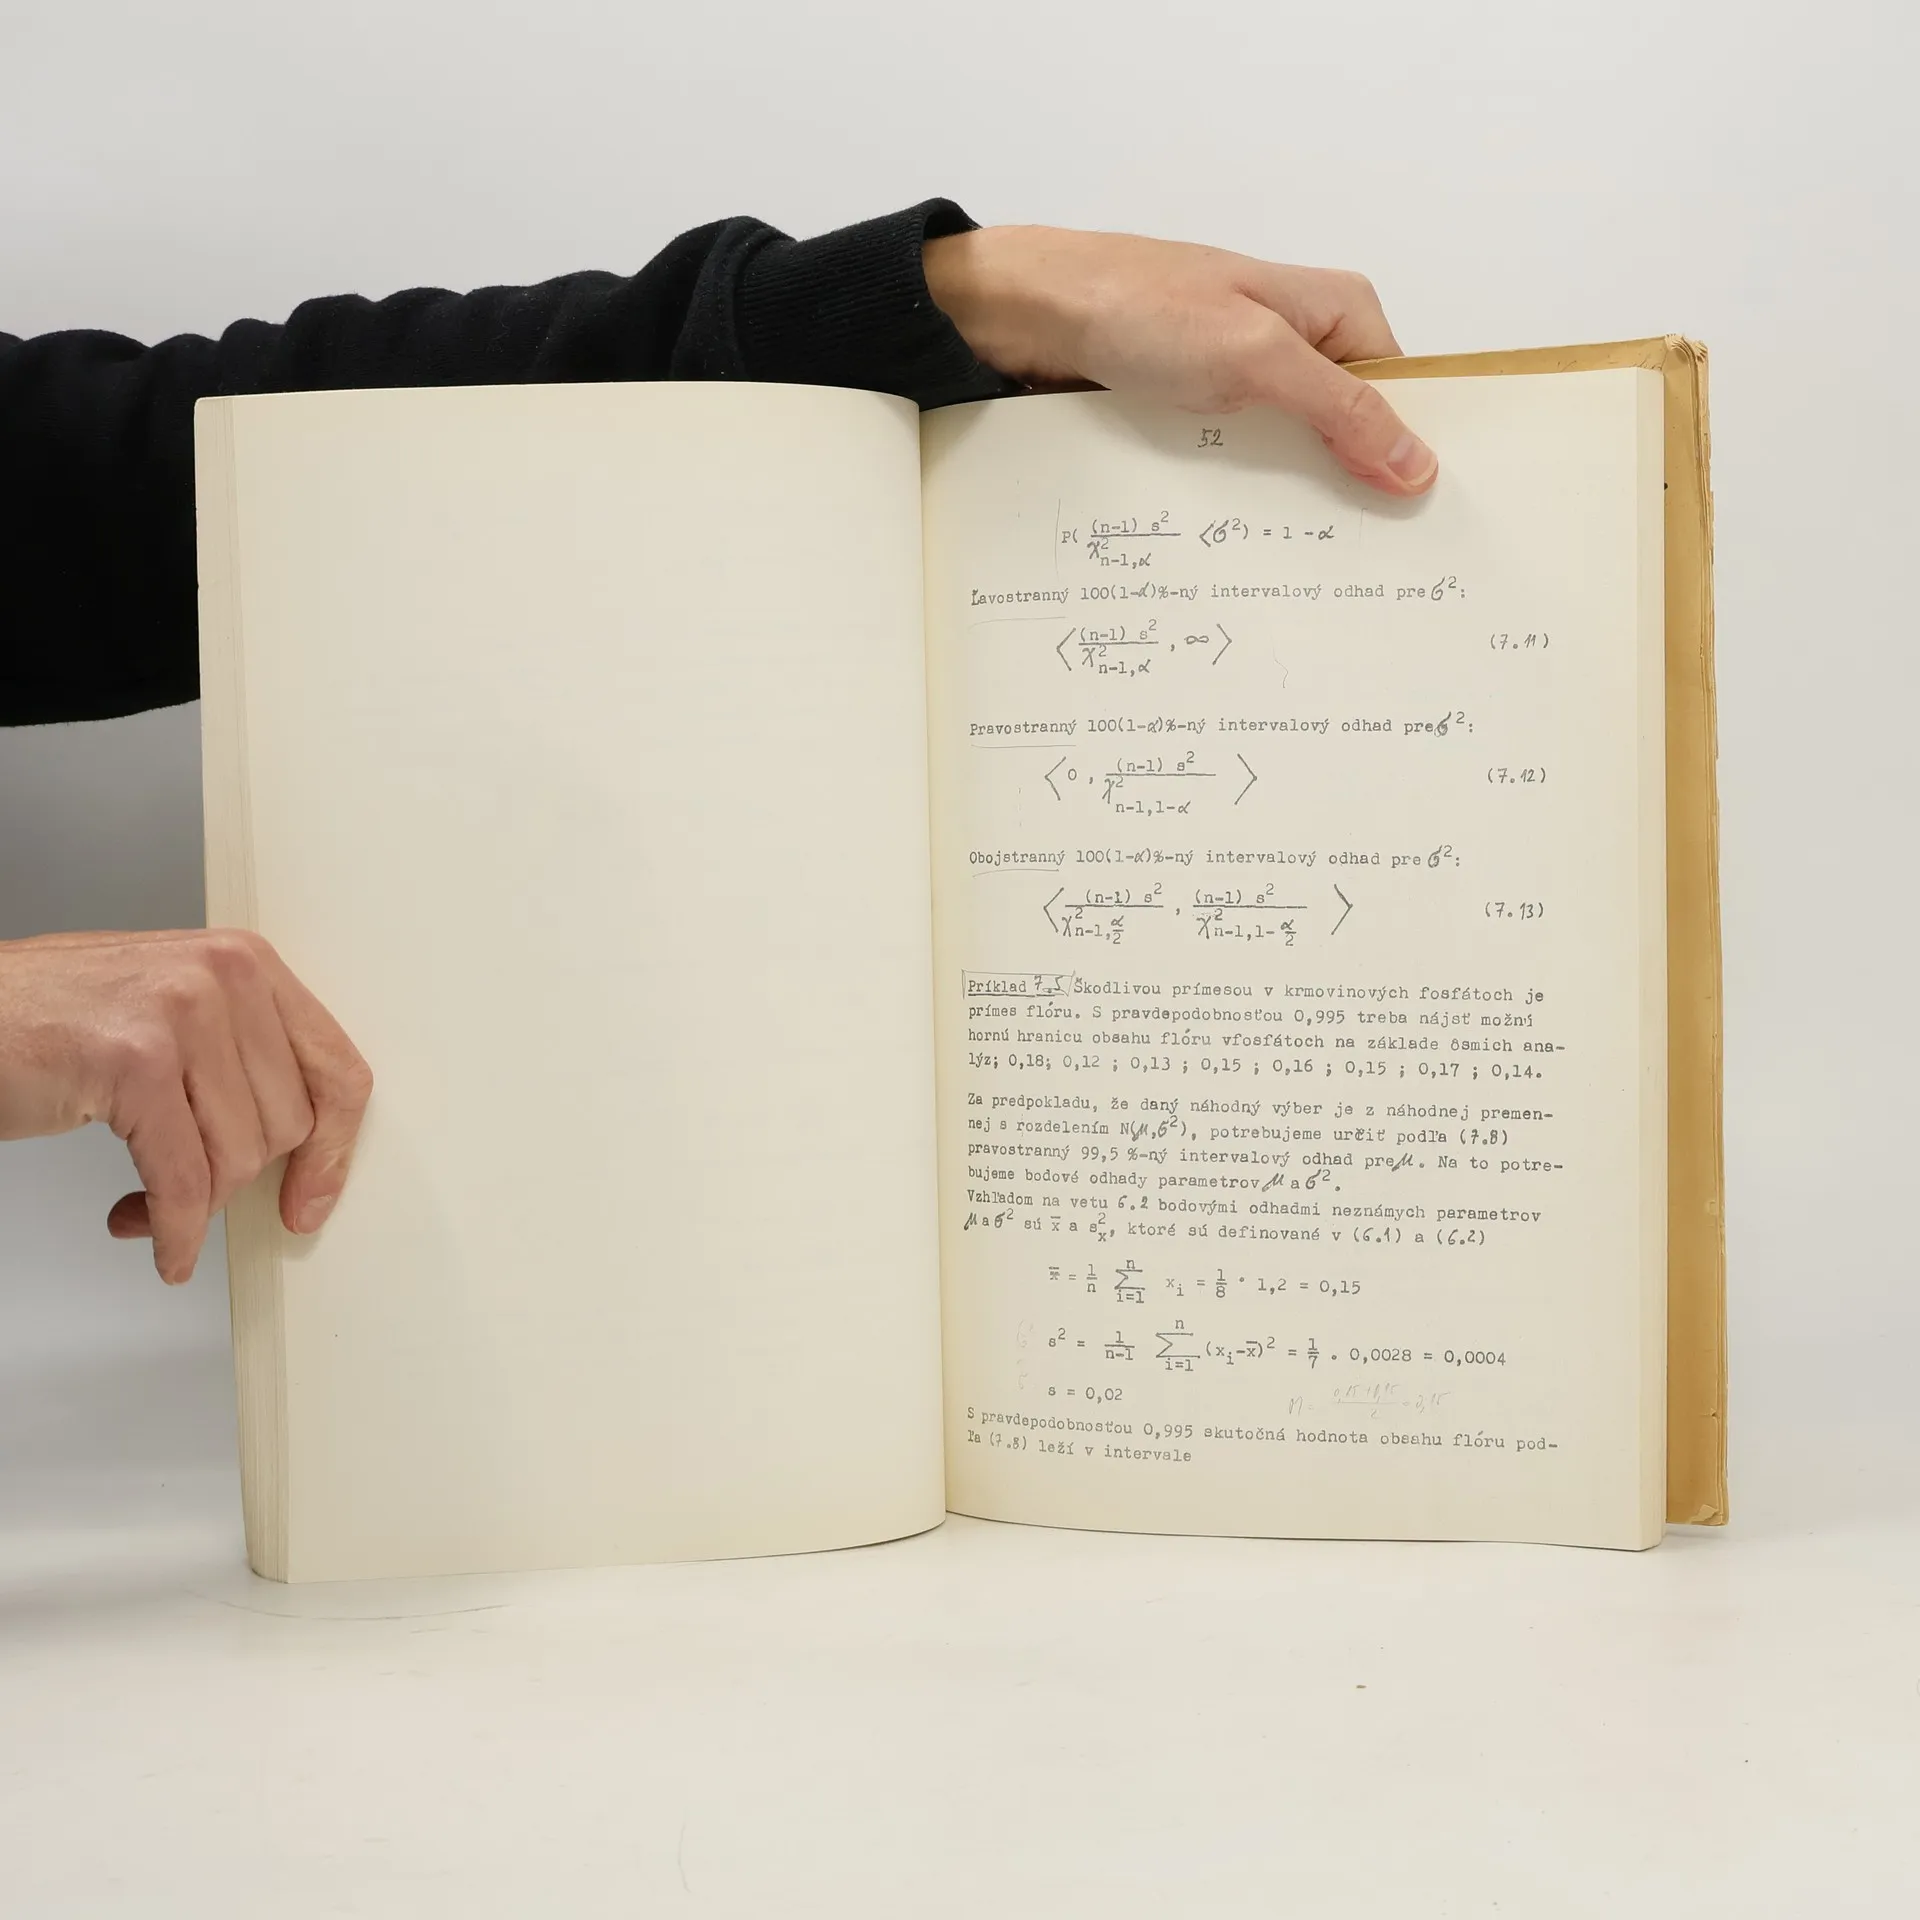 52
P( (n-1) s² / χ²n-1,α < σ²) = 1 - α
Ľavostranný 100(1-α)%-ný intervalový odhad pre σ²:
⟨ (n-1) s² / χ²n-1,α , ∞ ⟩ (7.11)
Pravostranný 100(1-α)%-ný intervalový odhad pre σ²:
⟨ 0 , (n-1) s² / χ²n-1,1-α ⟩ (7.12)
Obojstranný 100(1-α)%-ný intervalový odhad pre σ²:
⟨ (n-1) s² / χ²n-1,α/2 , (n-1) s² / χ²n-1,1-α/2 ⟩ (7.13)
Príklad 7.5 Škodlivou prímesou v krmovinových fosfátoch je
prímes flóru. S pravdepodobnosťou 0,995 treba nájsť možnú
hornú hranicu obsahu flóru vfosfátoch na základe ôsmich ana-
lýz; 0,18; 0,12 ; 0,13 ; 0,15 ; 0,16 ; 0,15 ; 0,17 ; 0,14.
Za predpokladu, že daný náhodný výber je z náhodnej premen-
nej s rozdelením N(μ,σ²), potrebujeme určiť podľa (7.8)
pravostranný 99,5 %-ný intervalový odhad pre μ. Na to potre-
bujeme bodové odhady parametrov μ a σ².
Vzhľadom na vetu 6.2 bodovými odhadmi neznámych parametrov
μ a σ² sú x̄ a s²x, ktoré sú definované v (6.1) a (6.2)
x̄ = 1/n ∑ i=1 n xi = 1/8 . 1,2 = 0,15
s² = 1/n-1 ∑ i=1 n (xi-x̄)² = 1/7 . 0,0028 = 0,0004
s = 0,02
S pravdepodobnosťou 0,995 skutočná hodnota obsahu flóru pod-
ľa (7.8) leží v intervale